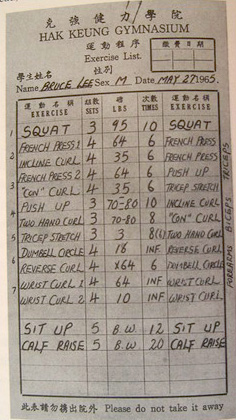 克強健力學院
HAK KEUNG GYMNASIUM
運動程序
Exercise List.
繳費日期
學生姓名 性別
Name BRUCE LEE Sex M Date MAY 27 1965.
運動名稱 EXERCISE 組數 SETS 磅 LBS 次數 TIMES 運動名稱 EXERCISE
1 SQUAT 3 95 10 SQUAT
FRENCH PRESS 1 4 64 6 FRENCH PRESS
2 INCLINE CURL 4 35 6 FRENCH PRESS
FRENCH PRESS 2 4 64 6 PUSH UP
3 "CON" CURL 4 35 6 TRICEP STRETCH
PUSH UP 3 70-80 10 INCLINE CURL
4 TWO HAND CURL 3 70-80 8 "CON" CURL
5 TRICEP STRETCH 3 3 8(6) TWO HAND CURL
DUMBELL CIRCLE 4 16 INF REVERSE CURL
6 REVERSE CURL 4 x64 6 DUMBELL CIRCLE
7 WRIST CURL 1 4 64 INF WRIST CURL
WRIST CURL 2 4 10 INF WRIST CURL
SIT UP 5 B.W. 12 SIT UP
CALF RAISE 5 B.W. 20 CALF RAISE
TRICEPS
BICEPS
FOREARMS
此表請勿携出院外 Please do not take it away